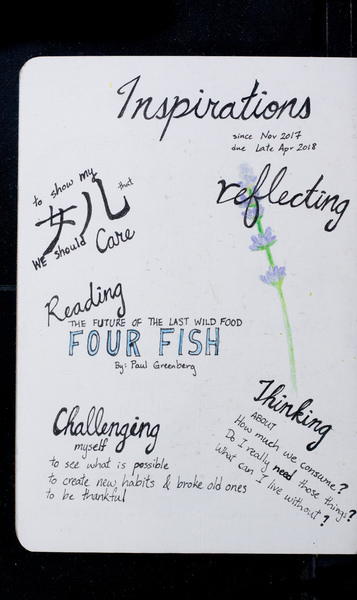 Inspirations
since Nov 2017
due Late Apr 2018
to show my
女儿 that
WE should Care
reflecting
Reading
THE FUTURE OF THE LAST WILD FOOD
FOUR FISH
By: Paul Greenberg
Challenging
myself
to see what is possible
to create new habits & broke old ones
to be thankful
Thinking
ABOUT
How much we consume?
Do I really need those things?
What can I live without?